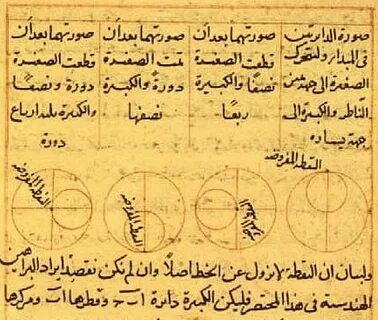 صورة الدايرتين
في المبدا ولتتحرك
الصغيرة الى جهة يمين
الناظر والكبيرة الى
جهة يساره
صورتهما بعد أن
قطعت الصغيرة
نصفًا والكبيرة
ربعًا
صورتهما بعد أن
تمت الصغيرة
دورة والكبيرة
نصفها
صورتهما بعد أن
قطعت الصغيرة
دورة ونصفًا
والكبيرة ثلثة ارباع
دورة
النقطة المفروضة
النقطة المفروضة
النقطة المفروضة
النقطة المفروضة
ولبيان ان النقطة لا تزول عن الخط اصلا وان لم نكن نقصد ايراد البراهين
الهندسية في هذا المختصر فليكن الكبيرة دائرة اب ج وقطرها اب ومركزها